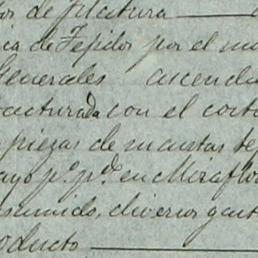 de filatura
ca de Tejidos por el m
Generales ascend
acturada con el cost
piezas de mantas te
ayo p.º p.do en Miraflo
sumido, diversos gast
oducto